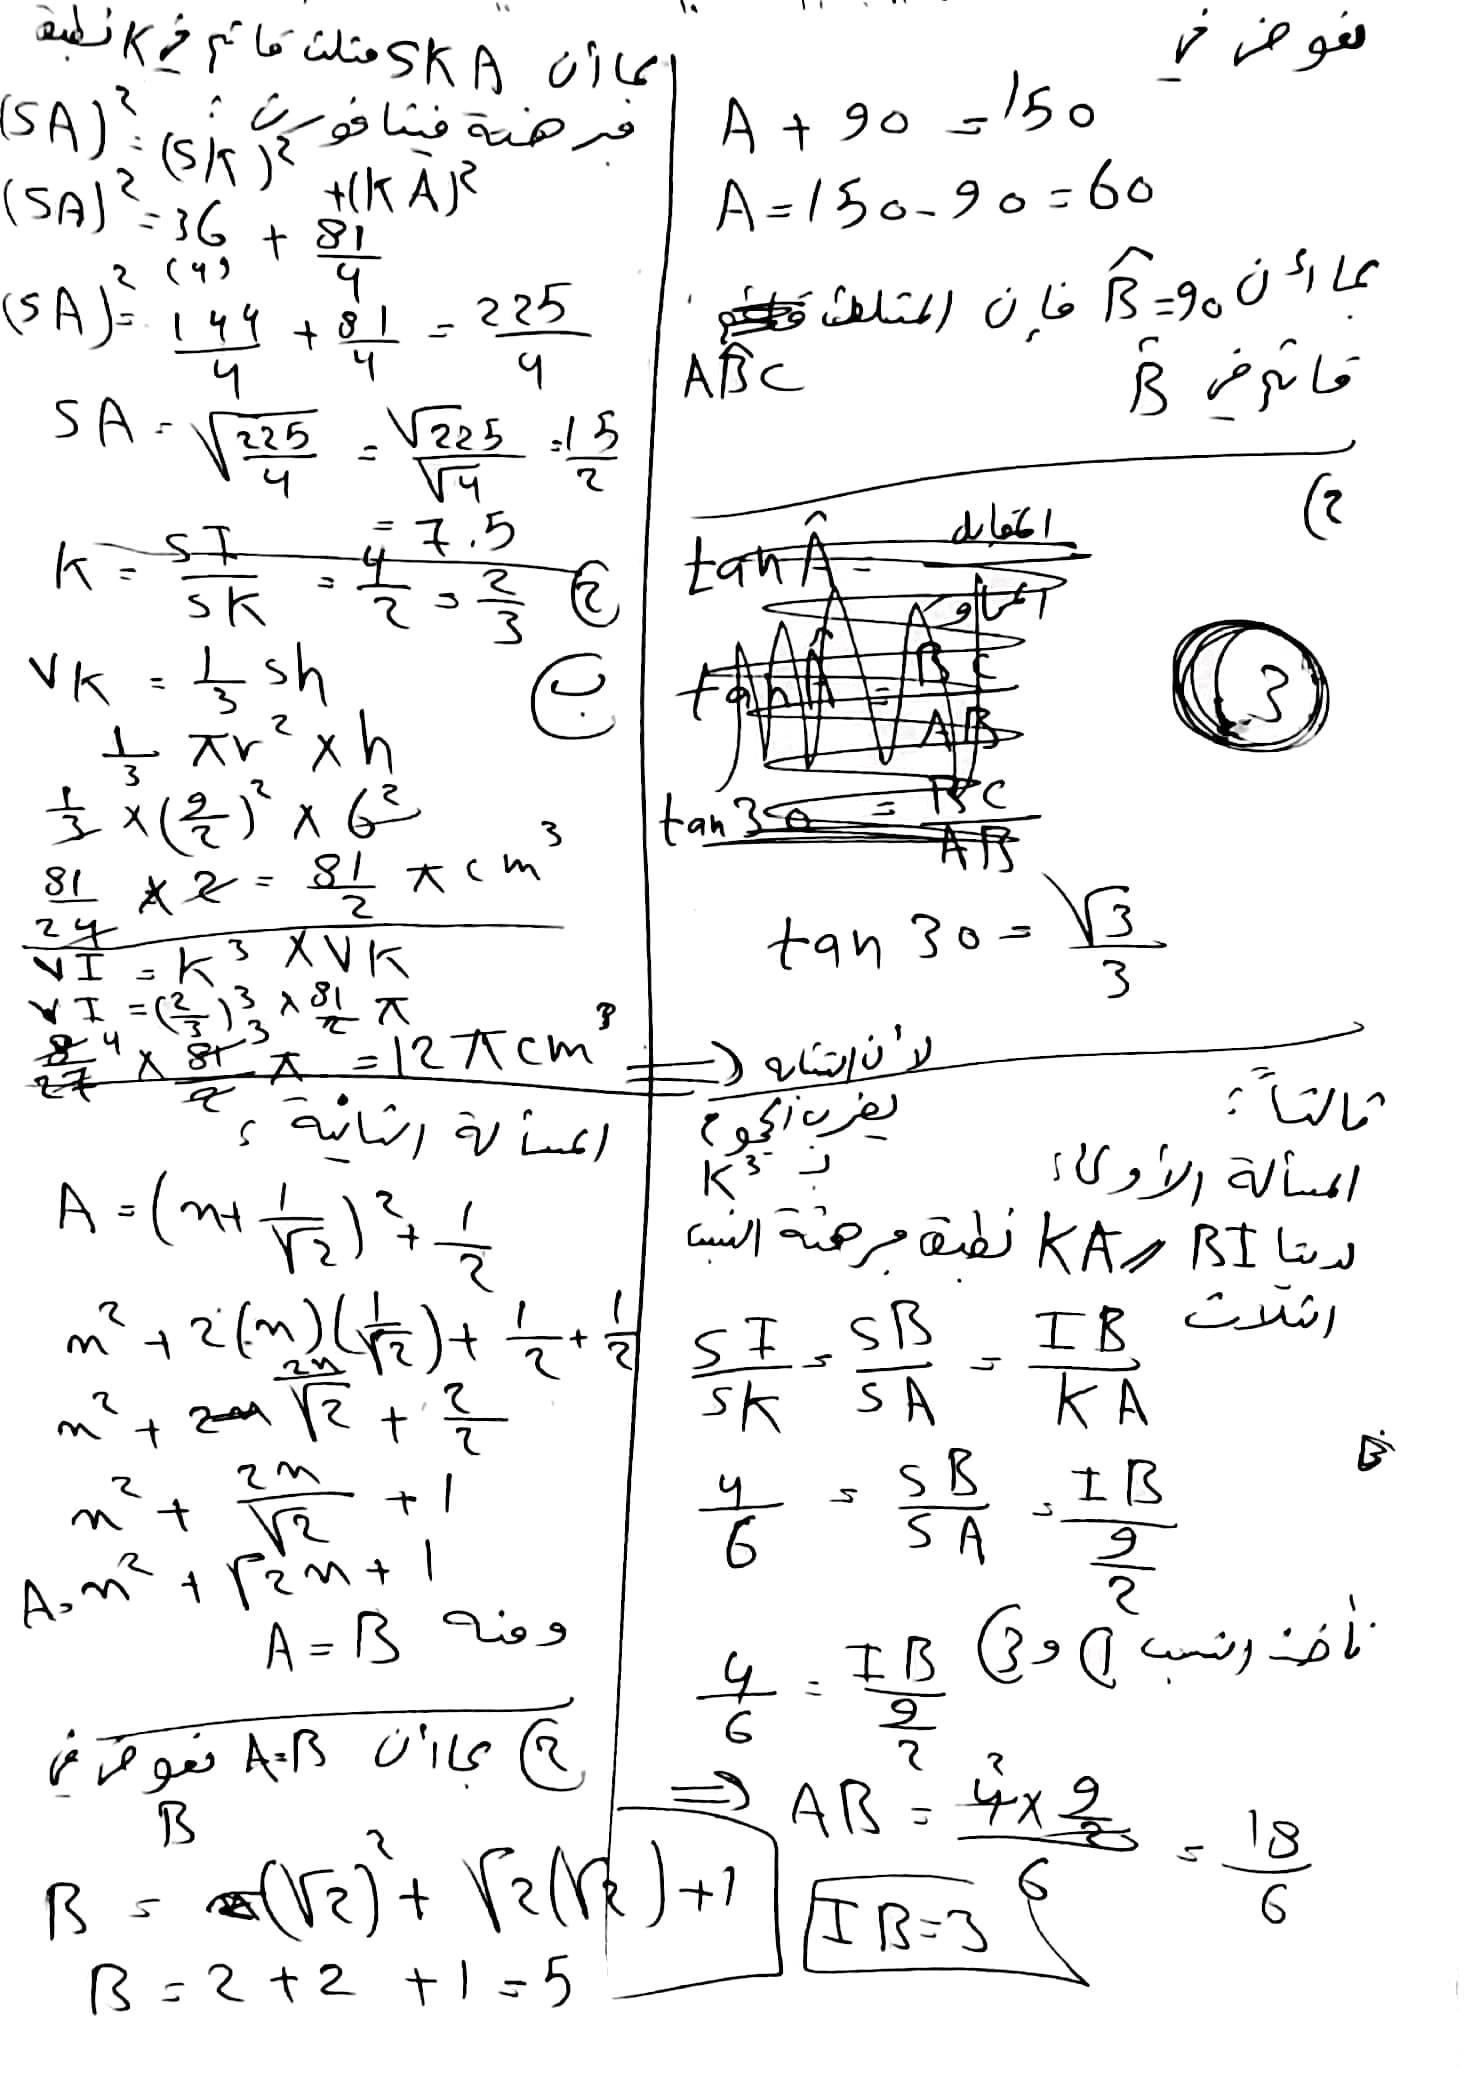 نعوض في
A + 90 = 150
A = 150 - 90 = 60
بما أن B̂ = 90 فإن المثلث
قائم في B̂ AB̂C
2)
tan Â = المقابل / المجاور
tan Â = BC / AB
tan 30 = BC / AB
3
tan 30 = √3 / 3
ثالثاً:
المسألة الأولى:
لدينا BI // KA نطبق مبرهنة النسب
الثلاث
SI/SK = SB/SA = IB/KA
4/6 = SB/SA = IB/(9/2)
B
نأخذ النسب 1 و 3
4/6 = IB/(9/2)
⇒ AB = (4 × 9/2)/6 = 18/6
IB = 3
بما أن SKA مثلث قائم في K نطبق
مبرهنة فيثاغورث:
(SA)² = (SK)² + (KA)²
(SA)² = 36 (4) + 81/4
(SA)² = 144/4 + 81/4 = 225/4
SA = √(225/4) = √225/√4 = 15/2
= 7.5
2
K = SI/SK = 4/2 = 2/3
ب
VK = 1/3 sh
1/3 πr² × h
1/3 × (9/2)² × 6²
81/24 × 2 = 81/2 π cm³
VI = K³ × VK
VI = (2/3)³ × 81/2 π
8/27 × 81/2 π = 12 π cm³
⇒ لأن التشابه
يضرب الحجوم
بـ K³
المسألة الثانية:
A = (x + 1/√2)² + 1/2
x² + 2(x)(1/√2) + 1/2 + 1/2
x² + 2x/√2 + 2/2
x² + 2x/√2 + 1
A = x² + √2 x + 1
ومنه A = B
2 بما أن A = B نعوض في
B
B = (√2)² + √2(√2) + 1
B = 2 + 2 + 1 = 5